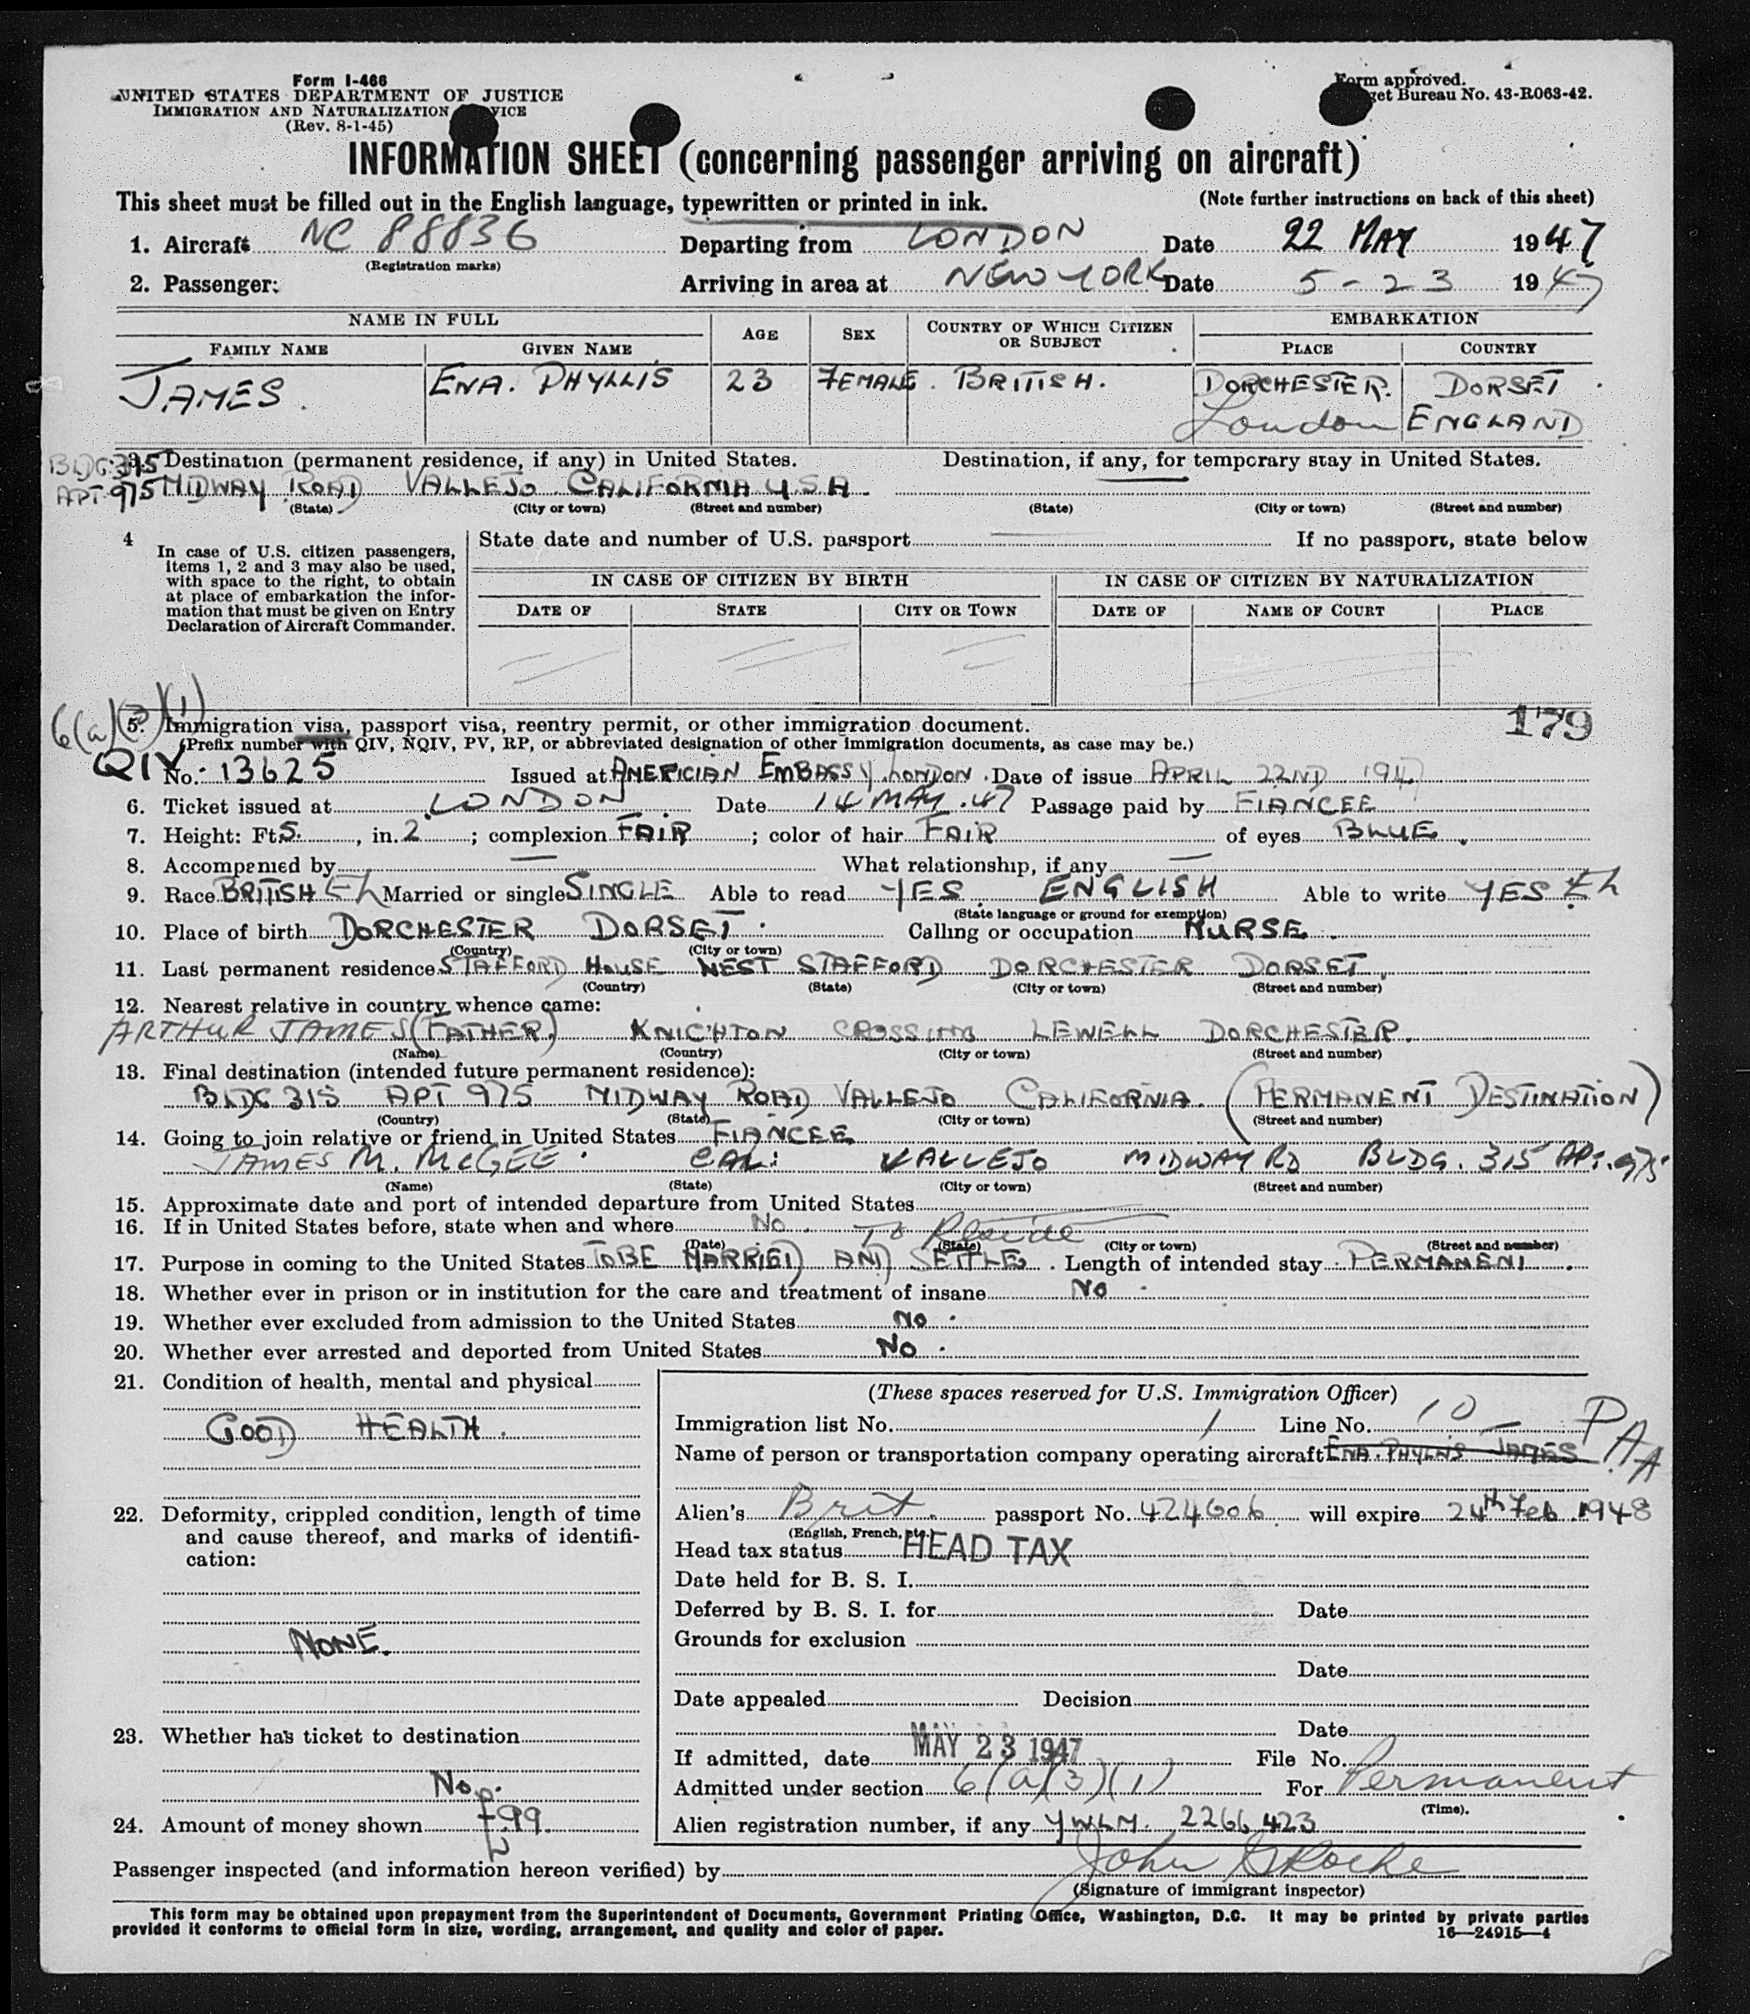 Form I-466
UNITED STATES DEPARTMENT OF JUSTICE
IMMIGRATION AND NATURALIZATION
(Rev. 8-1-45)
Form approved.
Budget Bureau No. 43-R063-42.
INFORMATION SHEET (concerning passenger arriving on aircraft)
This sheet must be filled out in the English language, typewritten or printed in ink.
(Note further instructions on back of this sheet)
1. Aircraft NC 88836 Departing from LONDON Date 22 MAY 1947
(Registration marks)
2. Passenger: Arriving in area at NEW YORK Date 5-23 1947
NAME IN FULL AGE SEX COUNTRY OF WHICH CITIZEN OR SUBJECT EMBARKATION
FAMILY NAME GIVEN NAME PLACE COUNTRY
JAMES. ENA. PHYLLIS 23 FEMALE. BRITISH. DORCHESTER. DORSET
London ENGLAND
BLDG: 315 3. Destination (permanent residence, if any) in United States. Destination, if any, for temporary stay in United States.
APT 975 MIDWAY ROAD VALLEJO. CALIFORNIA U.S.A.
(State) (City or town) (Street and number) (State) (City or town) (Street and number)
4 In case of U.S. citizen passengers, items 1, 2 and 3 may also be used, with space to the right, to obtain at place of embarkation the information that must be given on Entry Declaration of Aircraft Commander.
State date and number of U.S. passport If no passport, state below
IN CASE OF CITIZEN BY BIRTH IN CASE OF CITIZEN BY NATURALIZATION
DATE OF STATE CITY OR TOWN DATE OF NAME OF COURT PLACE
6(a)(3)(1)
179
5. Immigration visa, passport visa, reentry permit, or other immigration document.
(Prefix number with QIV, NQIV, PV, RP, or abbreviated designation of other immigration documents, as case may be.)
QIV No. 13625 Issued at AMERICIAN EMBASSY LONDON. Date of issue APRIL 22ND 1947
6. Ticket issued at LONDON Date 14 MAY. 47 Passage paid by FIANCEE
7. Height: Ft. 5., in. 2; complexion FAIR; color of hair FAIR of eyes BLUE.
8. Accompanied by — What relationship, if any —
9. Race BRITISH Eh Married or single SINGLE Able to read YES. ENGLISH Able to write YES Eh
(State language or ground for exemption)
10. Place of birth DORCHESTER DORSET. Calling or occupation NURSE.
(Country) (City or town)
11. Last permanent residence STAFFORD HOUSE WEST STAFFORD DORCHESTER DORSET.
(Country) (State) (City or town) (Street and number)
12. Nearest relative in country whence came:
ARTHUR JAMES (FATHER) KNIGHTON CROSSING LEWELL DORCHESTER.
(Name) (Country) (City or town) (Street and number)
13. Final destination (intended future permanent residence):
BLDG 315 APT 975 MIDWAY ROAD VALLEJO CALIFORNIA. (PERMANENT DESTINATION)
(Country) (State) (City or town) (Street and number)
14. Going to join relative or friend in United States FIANCEE
JAMES M. McGEE. CAL: VALLEJO MIDWAY RD BLDG. 315 APT. 975
(Name) (State) (City or town) (Street and number)
15. Approximate date and port of intended departure from United States
16. If in United States before, state when and where No. To Reside
(Date) (State) (City or town) (Street and number)
17. Purpose in coming to the United States TO BE MARRIED AND SETTLE. Length of intended stay PERMANENT.
18. Whether ever in prison or in institution for the care and treatment of insane No.
19. Whether ever excluded from admission to the United States No.
20. Whether ever arrested and deported from United States No.
21. Condition of health, mental and physical
GOOD HEALTH.
22. Deformity, crippled condition, length of time and cause thereof, and marks of identification:
NONE.
23. Whether has ticket to destination
No.
24. Amount of money shown £99.
(These spaces reserved for U.S. Immigration Officer)
Immigration list No. 1 Line No. 10
Name of person or transportation company operating aircraft ENA. PHYLLIS JAMES PAA
Alien's Brit. passport No. 424606 will expire 24th Feb. 1948
(English, French, etc.)
Head tax status HEAD TAX
Date held for B. S. I.
Deferred by B. S. I. for Date
Grounds for exclusion
Date
Date appealed Decision
Date
If admitted, date MAY 23 1947 File No.
Admitted under section 6(a)(3)(1) For Permanent
(Time).
Alien registration number, if any 2266423
Passenger inspected (and information hereon verified) by John Roche
(Signature of immigrant inspector)
This form may be obtained upon prepayment from the Superintendent of Documents, Government Printing Office, Washington, D.C. It may be printed by private parties
provided it conforms to official form in size, wording, arrangement, and quality and color of paper.
16—24915-4